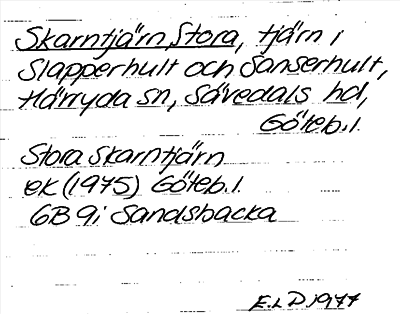 Skarntjärn, Stora, tjärn i
Slapperhult och Sanserhult,
Härryda sn, Sävedals hd,
Göteb. l.
Stora Skarntjärn
ek (1975) Göteb. l.
6B 9i Sandsbacka
E.L D. 1977